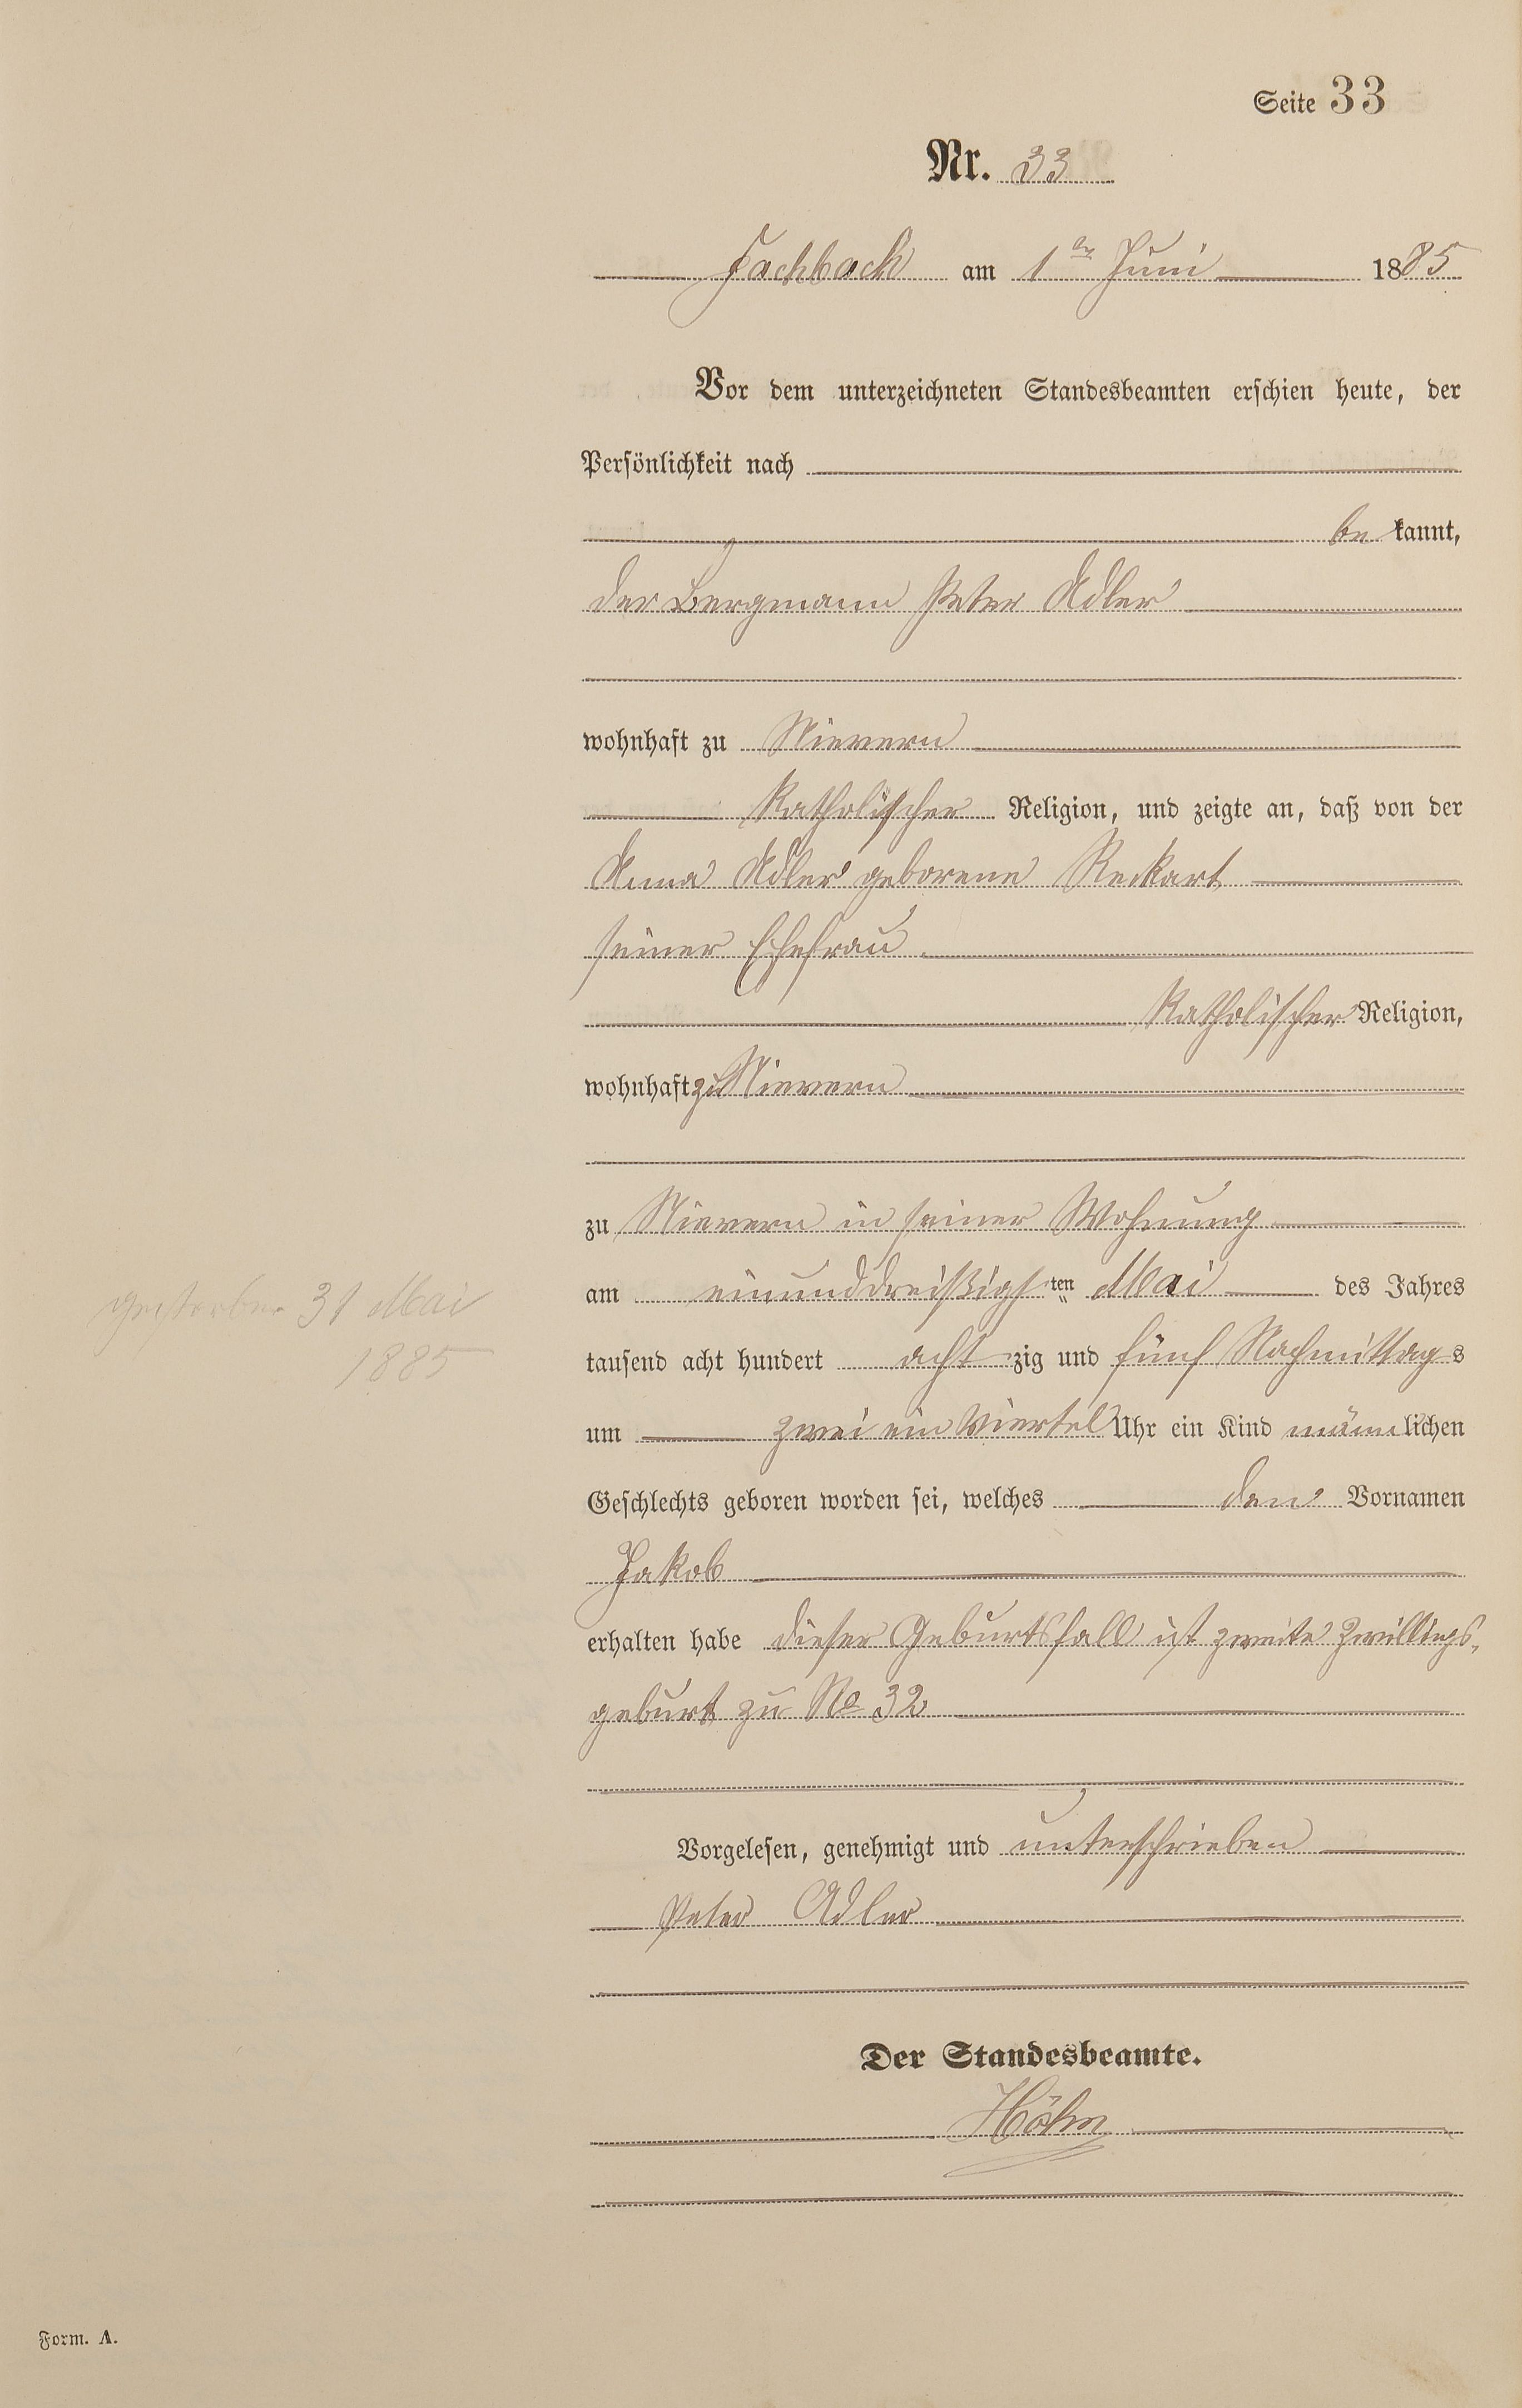 Seite 33
Nr. 33
Fachbach am 1ten Juni 1885
Vor dem unterzeichneten Standesbeamten erschien heute, der
Persönlichkeit nach
be kannt,
der Bergmann Peter Adler
wohnhaft zu Nievern
katholischer Religion, und zeigte an, daß von der
Anna Adler geborene Reckart
seiner Ehefrau
katholischer Religion,
wohnhaft zu Nievern
zu Nievern in seiner Wohnung
am einunddreißigsten Mai des Jahres
gestorben 31 Mai
1885
tausend acht hundert achtzig und fünf Nachmittags
um zwei ein Viertel Uhr ein Kind männlichen
Geschlechts geboren worden sei, welches den Vornamen
Jakob
erhalten habe dieser Geburtsfall ist zweite Zwillings-
geburt zu No 32
Vorgelesen, genehmigt und unterschrieben
Peter Adler
Der Standesbeamte.
Höhn
Form. A.